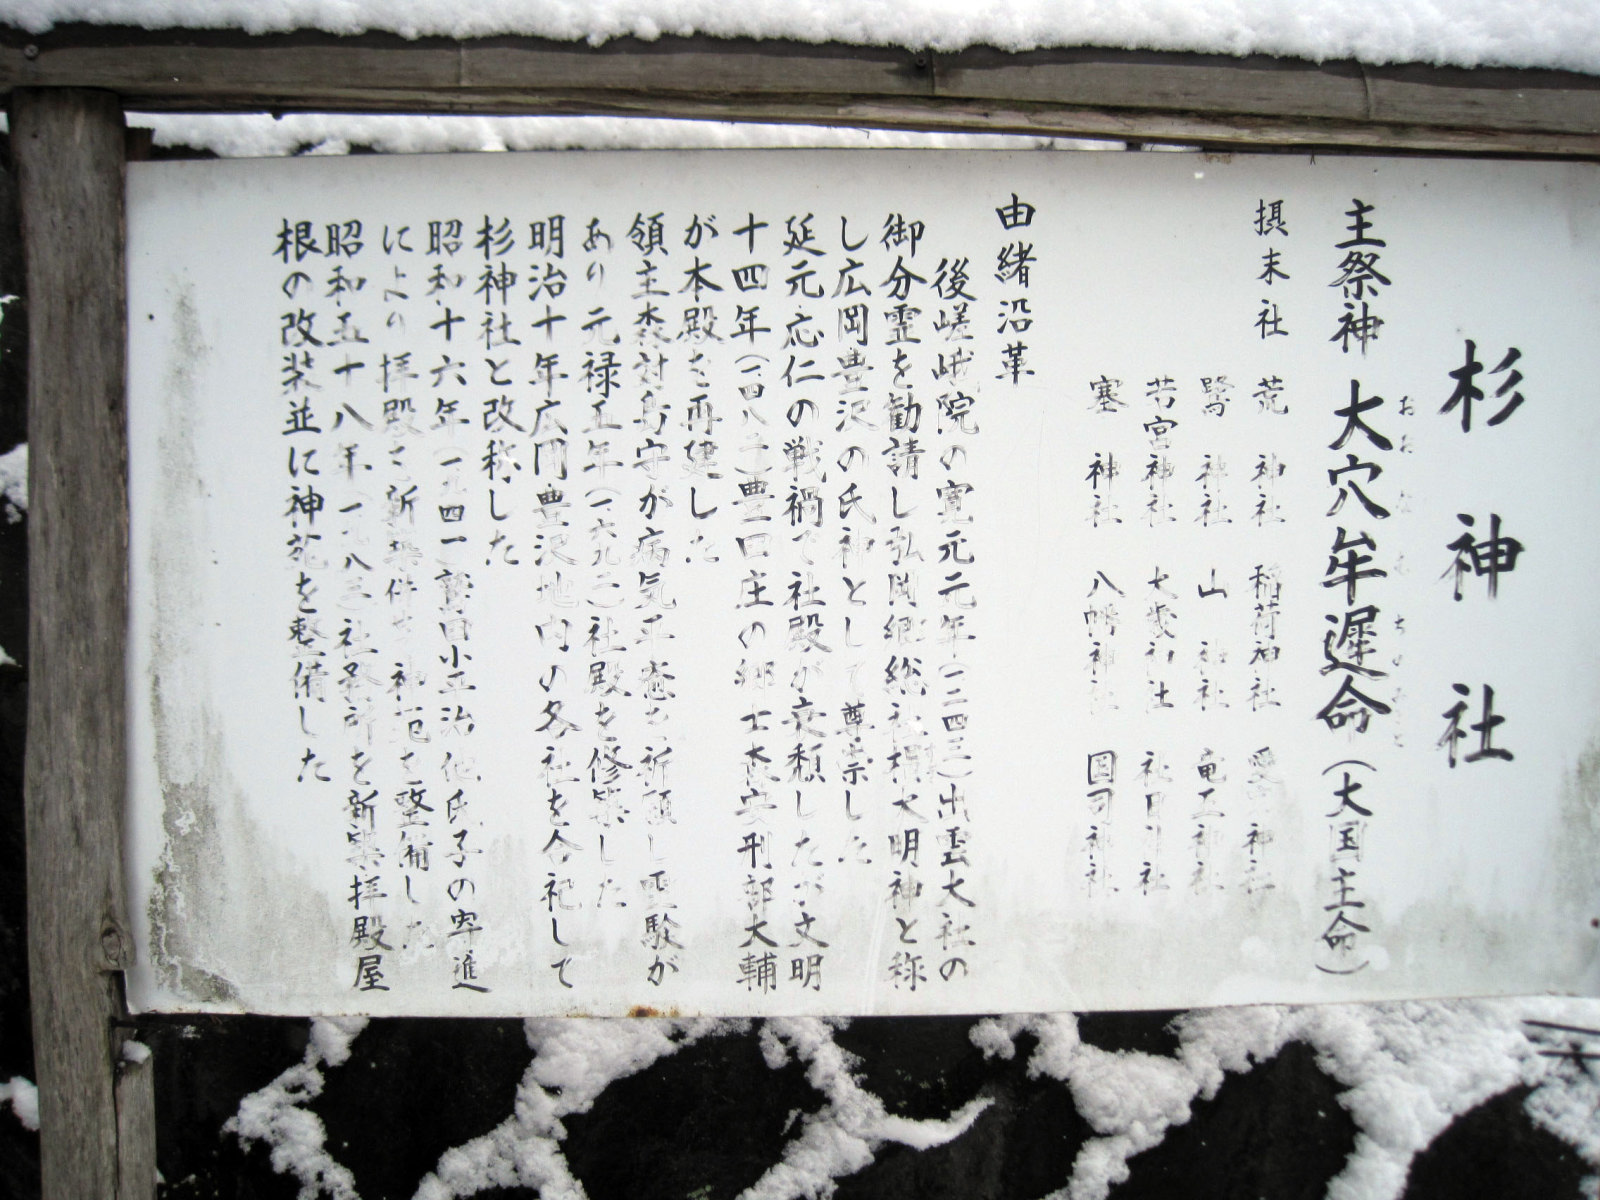 杉神社
主祭神 大穴牟遅命(大国主命)
おお な む ち の みこと
摂末社 荒神社 稲荷神社 愛宕神社
鷺神社 山神社 竜王神社
若宮神社 大歳神社 社日神社
塞神社 八幡神社 国司神社
由緒沿革
後嵯峨院の寛元元年(一二四三)出雲大社の
御分霊を勧請し弘岡郷総社槙大明神と称
し広岡豊沢の氏神として尊崇した
延元応仁の戦禍で社殿が衰頽したが文明
十四年(一四八二)豊田庄の郷士森安刑部大輔
が本殿を再建した
領主森対馬守が病気平癒を祈願し霊験が
あり元禄五年(一六九二)社殿を修築した
明治十年広岡豊沢地内の各社を合祀して
杉神社と改称した
昭和十六年(一九四一)小平治他氏子の寄進
により拝殿を新築併せ神苑を整備した
昭和五十八年(一九八三)社務所を新築拝殿屋
根の改装並に神苑を整備した